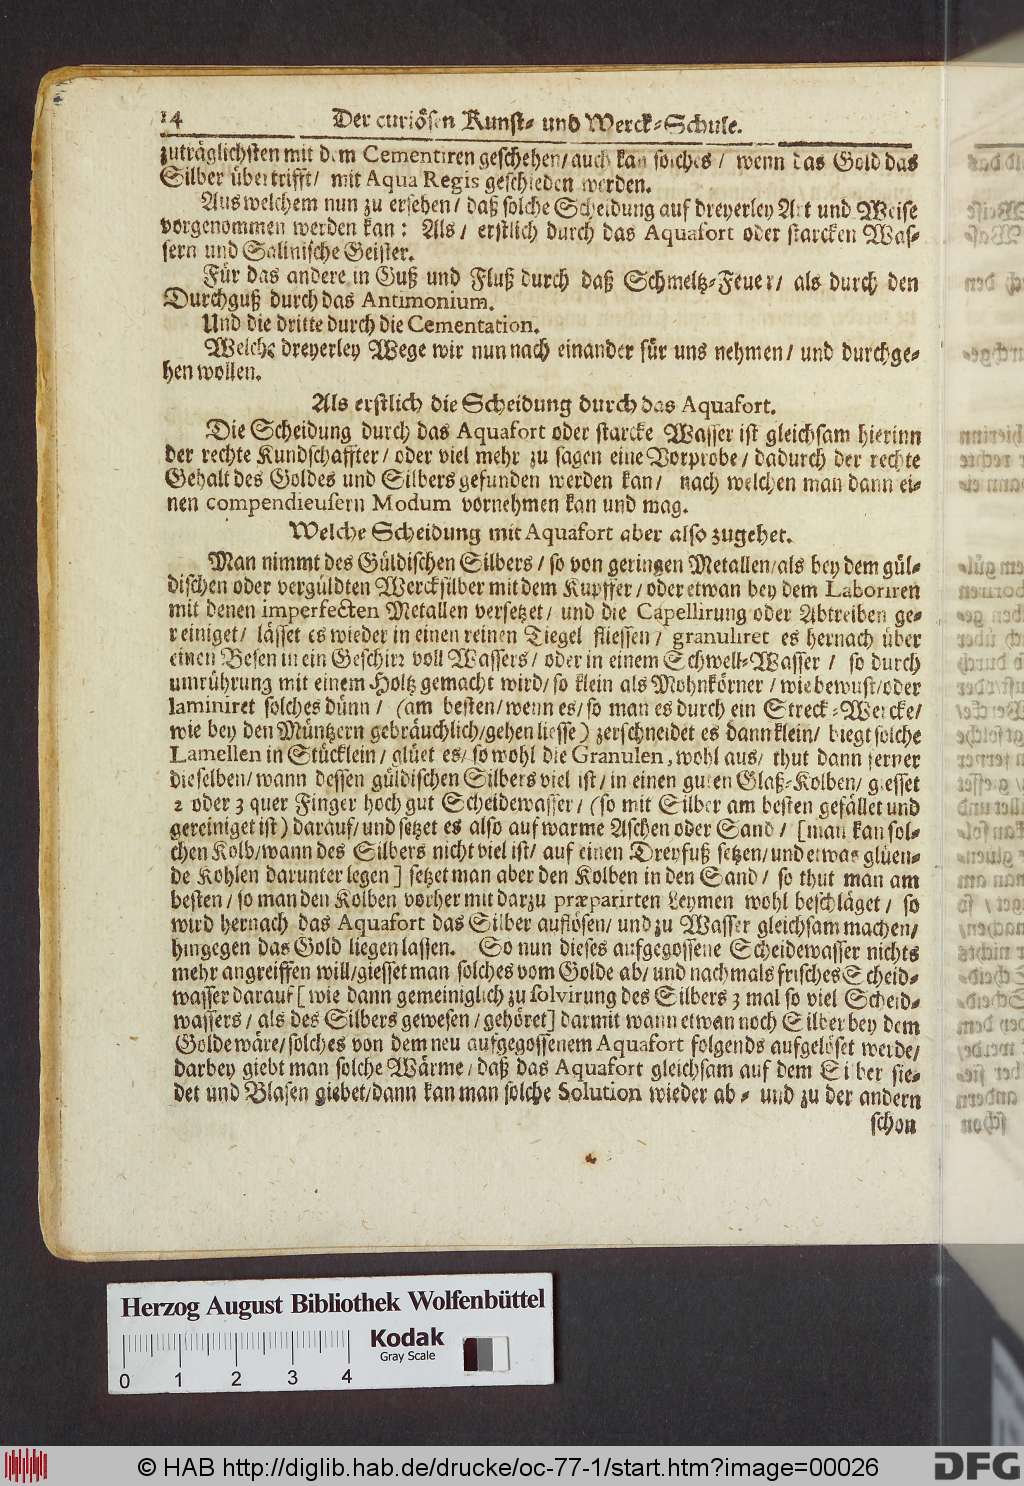 14 Der curiösen Kunst- und Werck-Schule.
zuträglichsten mit dem Cementiren geschehen/ auch kan solches / wenn das Gold das
Silber übertrifft/ mit Aqua Regis geschieden werden.
Aus welchem nun zu ersehen/ daß solche Scheidung auf dreyerley Art und Weise
vorgenommen werden kan: Als/ erstlich durch das Aquafort oder starcken Was-
sern und Salinische Geister.
Für das andere in Guß und Fluß durch daß Schmeltz-Feuer/ als durch den
Durchguß durch das Antimonium.
Und die dritte durch die Cementation.
Welche dreyerley Wege wir nun nach einander für uns nehmen/ und durchge-
hen wollen.
Als erstlich die Scheidung durch das Aquafort.
Die Scheidung durch das Aquafort oder starcke Wasser ist gleichsam hierinn
der rechte Kundschaffter/ oder viel mehr zu sagen eine Vorprobe/ dadurch der rechte
Gehalt des Goldes und Silbers gefunden werden kan/ nach welchen man dann ei-
nen compendieusern Modum vornehmen kan und mag.
Welche Scheidung mit Aquafort aber also zugehet.
Man nimmt des Güldischen Silbers/ so von geringen Metallen/als bey dem gül-
dischen oder vergüldten Wercksilber mit dem Kupffer/ oder etwan bey dem Laboriren
mit denen imperfecten Metallen versetzet/ und die Capellirung oder Abtreiben ge-
reiniget/ lässet es wieder in einen reinen Tiegel fliessen/ granuliret es hernach über
einen Besen in ein Geschirr voll Wassers/ oder in einem Schwell-Wasser / so durch
umrührung mit einem Holtz gemacht wird/ so klein als Mohnkörner / wie bewust/oder
laminiret solches dünn/ (am besten/ wenn es/ so man es durch ein Streck-Wercke/
wie bey den Müntzern gebräuchlich/gehen liesse) zerschneidet es dann klein/ biegt solche
Lamellen in Stücklein/ glüet es/ so wohl die Granulen, wohl aus/ thut dann ferner
dieselben/ wann dessen güldischen Silbers viel ist/ in einen guten Glaß-Kolben/ giesset
2 oder 3 quer Finger hoch gut Scheidewasser/ (so mit Silber am besten gefället und
gereiniget ist) darauf/ und setzet es also auf warme Aschen oder Sand/ [man kan sol-
chen Kolb/wann des Silbers nicht viel ist/ auf einen Dreyfuß setzen/ und etwas glüen-
de Kohlen darunter legen] setzet man aber den Kolben in den Sand/ so thut man am
besten/ so man den Kolben vorher mit darzu præparirten Leymen wohl beschläget/ so
wird hernach das Aquafort das Silber auflösen/ und zu Wasser gleichsam machen/
hingegen das Gold liegen lassen. So nun dieses aufgegossene Scheidewasser nichts
mehr angreiffen will/giesset man solches vom Golde ab/ und nachmals frisches Scheid-
wasser darauf [wie dann gemeiniglich zu solvirung des Silbers 3 mal so viel Scheid-
wassers/ als des Silbers gewesen/ gehöret] darmit wann etwan noch Silber bey dem
Golde wäre/ solches von dem neu aufgegossenem Aquafort folgends aufgelöset werde/
darbey giebt man solche Wärme/ daß das Aquafort gleichsam auf dem Silber sie-
det und Blasen giebet/dann kan man solche Solution wieder ab- und zu der andern
schon
Herzog August Bibliothek Wolfenbüttel
Kodak
Gray Scale
0 1 2 3 4
© HAB http://diglib.hab.de/drucke/oc-77-1/start.htm?image=00026
DFG